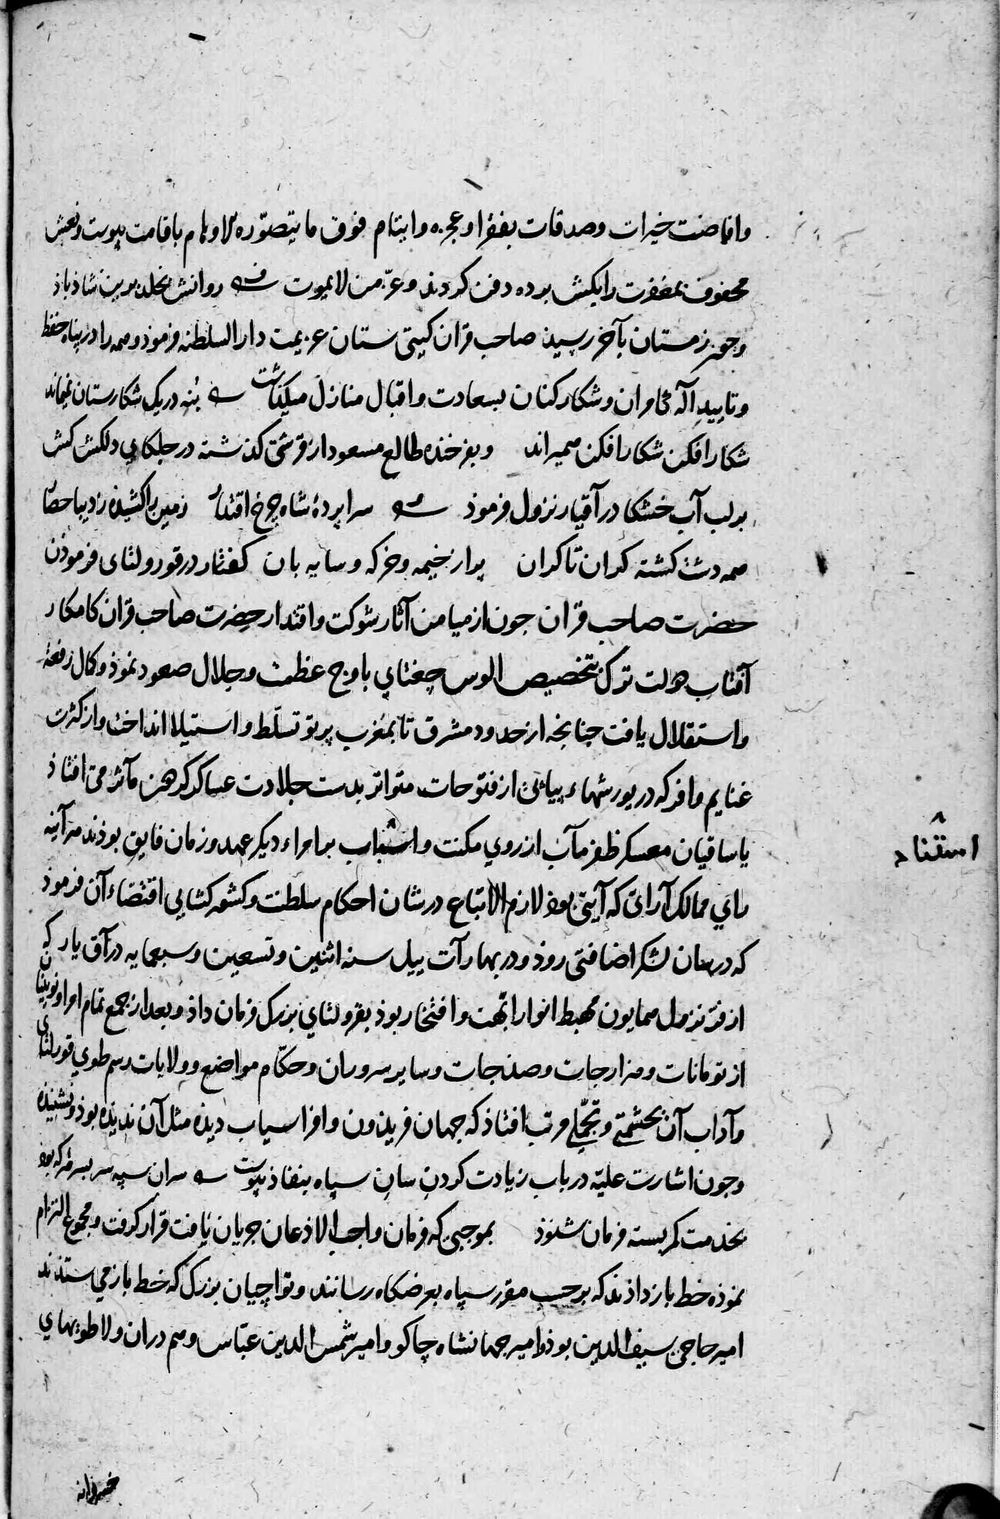 وافاضت خیرات و صدقات بفقرا و عجزه و ایتام فوق ما یتصوّره الاوهام باقامت پیوست و نعش
محفوف بمغفرت را بکش برده دفن کردند و عزّ من لایموت روانش بخلد برین شاذ باذ
وچون زمستان بآخر رسید صاحب قران گیتی ستان عزیمت دار السلطنه فرموذ و همه را در پناه حفظ
و تایید اله کامران و شکار کنان بسعادت و اقبال منازل میگذاشت بنه در یک شکارستان نماند
شکار افکن شکار افکن همیراند وبفرخنده طالع مسعود از قرشی گذشته در جلکای دلکش کش
بر لب آب خشکا در آقیار نزول فرموذ سراپردهٔ شاه چرخ اقتدار زمین را کشیده ز دیبا حصار
همه دشت گشته کران تا کران پر از خیمه و خرکه و سایه بان گفتار در قورولتای فرموذن
حضرت صاحب قران چون از میامن آثار شوکت و اقتدار حضرت صاحب قران کامکار
آفتاب دولت ترک بتخصیص الوس جغتای باوج عظمت و جلال صعود نموذ و کمال رفعة
و استقلال یافت چنانچه از حدود مشرق تا بمغرب پرتو تسلّط و استیلا انداخت و از کثرت
غنایم وافر که در یورشهاء پیاپی از فتوحات متواتر بدست جلادت عساکر گردون مآثر می افتاذ
یاساقیان معسکر ظفر مآب از روی مکنت و استباب بر امراء دیگر عهد و زمان فایق بوذند هرآینه
رای ممالک آرای که آیتی بوذ لازم الاتباع در شان احکام سلطنت و کشور کشایی اقتضاء آن فرموذ
که در سان لشکر اضافتی روذ و در بهار آت ییل سنه اثنین و تسعین و سبعمایه در آق یار که
از فرّ نزول همایون مهبط انوار ابّهت و افتخار بوذ بقرولتای بزرک فرمان داذ و بعد از جمع تمام امرا و نوینیان
از تومانات و هزارجات و صدجات و سایر سروران و حکّام مواضع و ولایات رسم طوی قورلتای
و آداب آن بحشمتی و تجمّلی مرتب افتاذ که جهان فریدون و افراسیاب دیذه مثل آن ندیذه بوذ و نشنیذه
وچون اشارت علیّه در باب زیادت کردن سان سپاه بنفاذ پیوست سران سپه سر بسر هر که بوذ
بخدمت کمر بسته فرمان شنوذ بموجبی که فرمان واجب الاذعان جریان یافت قرار گرفت و مجموع التزام
نموذه خط باز داذند که بر حسب مقرر سپاه بعرضگاه رسانند و تواچیان بزرک که خط باز می ستدند
امیر حاجی سیف الدین بوذ و امیر جهانشاه جاکو و امیر شمس الدین عباس و هم دران ولا طویهای
استقناء
خسروانه